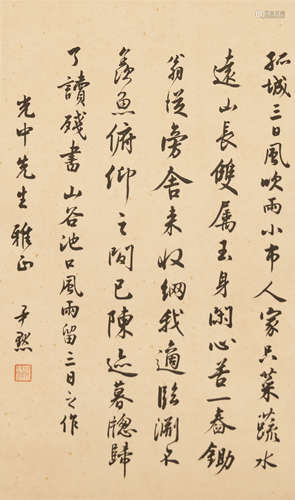 孤城三日風吹雨小市人家只菜蔬水
遠山長雙屬玉身閑心苦一舂鋤
翁從旁舍来收網我適臨淵不
羨魚俯仰之間已陳迹暮牕歸
了讀殘書 山谷池口風雨留三日之作
光中先生雅正 尹默